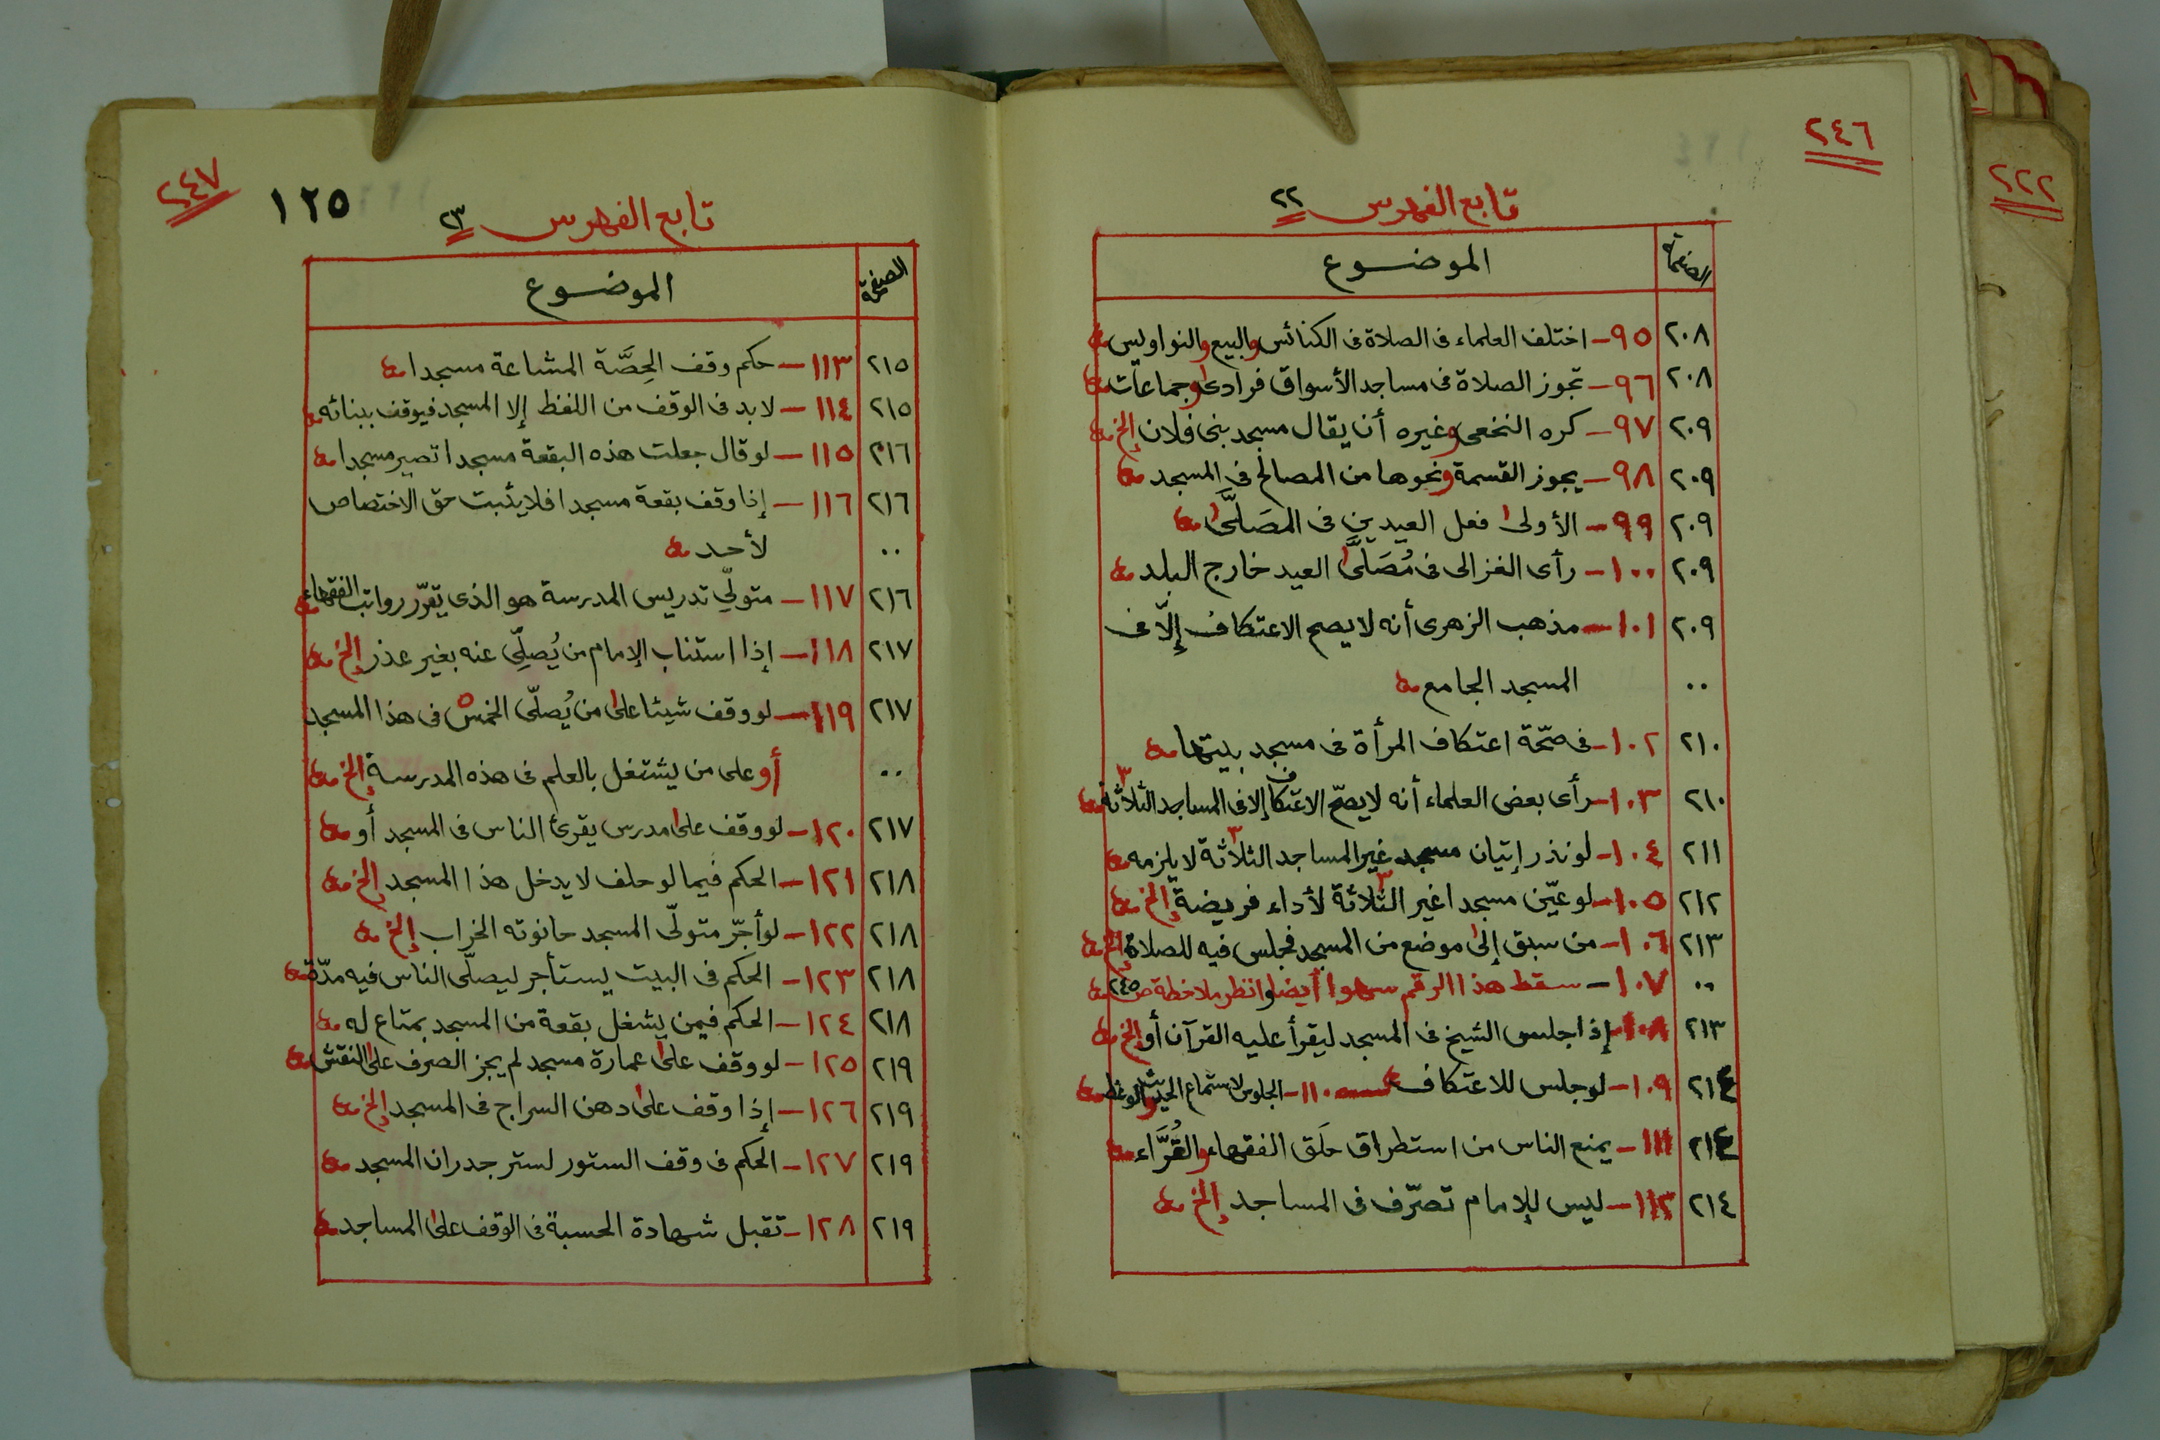 ٢٤٦
تابع الفهرس ٢٢
الصفحة الموضوع
٢٠٨ ٩٥- اختلف العلماء فى الصلاة فى الكنائس والبيع والنواويس
٢٠٨ ٩٦- تجوز الصلاة فى مساجد الأسواق فرادى وجماعات
٢٠٩ ٩٧- كره النخعى وغيره أن يقال مسجد بنى فلان إلخ
٢٠٩ ٩٨- يجوز القسمة ونحوها من المصالح فى المسجد
٢٠٩ ٩٩- الأولى فعل العيدين فى المصَلَّى
٢٠٩ ١٠٠- رأى الغزالى فى مُصَلَّى العيد خارج البلد
٢٠٩ ١٠١- مذهب الزهرى أنه لا يصح الاعتكاف إلّا فى
٠٠ المسجد الجامع
٢١٠ ١٠٢- فى صحّة اعتكاف المرأة فى مسجد بيتها
٢١٠ ١٠٣- رأى بعض العلماء أنه لا يصحّ الاعتكاف إلا فى المساجد الثلاثة ٣
٢١١ ١٠٤- لو نذر إتيان مسجد غير المساجد الثلاثة ٣ لا يلزمه
٢١٢ ١٠٥- لو عيّن مسجدا غير الثلاثة ٣ لأداء فريضة إلخ
٢١٣ ١٠٦- من سبق إلى موضع من المسجد فجلس فيه للصلاة إلخ
٠٠ ١٠٧- سقط هذا الرقم سهوا أيضا وانظر ملاحظة ص ٢٤٥
٢١٣ ١٠٨- إذا جلس الشيخ فى المسجد ليقرأ عليه القرآن أو إلخ
٢١٤ ١٠٩- لو جلس للاعتكاف ١١٠- الجلوس لاستماع الحديث والوعظ
٢١٤ ١١١- يمنع الناس من استطراق حَلَق الفقهاء والقُرَّاء
٢١٤ ١١٢- ليس للإمام تصرّف فى المساجد إلخ
٢٢٢
٢٤٧
١٢٥
تابع الفهرس ٢٣
الصفحة الموضوع
٢١٥ ١١٣- حكم وقف الحِصَّة المشاعة مسجدا
٢١٥ ١١٤- لا بد فى الوقف من اللفظ إلا المسجد فيوقف ببنائه
٢١٦ ١١٥- لو قال جعلت هذه البقعة مسجدا تصير مسجدا
٢١٦ ١١٦- إذا وقف بقعة مسجدا فلا يثبت حق الاختصاص
٠٠ لأحد
٢١٦ ١١٧- متولّي تدريس المدرسة هو الذى يقرّر رواتب الفقهاء
٢١٧ ١١٨- إذا استناب الإمام من يُصلِّى عنه بغير عذر إلخ
٢١٧ ١١٩- لو وقف شيئا على من يُصلّى الخمس ٥ فى هذا المسجد
٠٠ أو على من يشتغل بالعلم فى هذه المدرسة إلخ
٢١٧ ١٢٠- لو وقف على مدرس يقرئ الناس فى المسجد أو
٢١٨ ١٢١- الحكم فيما لو حلف لا يدخل هذا المسجد إلخ
٢١٨ ١٢٢- لو أجّر متولّى المسجد حانوته الخراب إلخ
٢١٨ ١٢٣- الحكم فى البيت يستأجر ليصلّى الناس فيه مدّة
٢١٨ ١٢٤- الحكم فيمن يشغل بقعة من المسجد بمتاع له
٢١٩ ١٢٥- لو وقف على عمارة مسجد لم يجز الصرف على النقش
٢١٩ ١٢٦- إذا وقف على دهن السراج فى المسجد إلخ
٢١٩ ١٢٧- الحكم فى وقف الستور لستر جدران المسجد
٢١٩ ١٢٨- تقبل شهادة الحسبة فى الوقف على المساجد